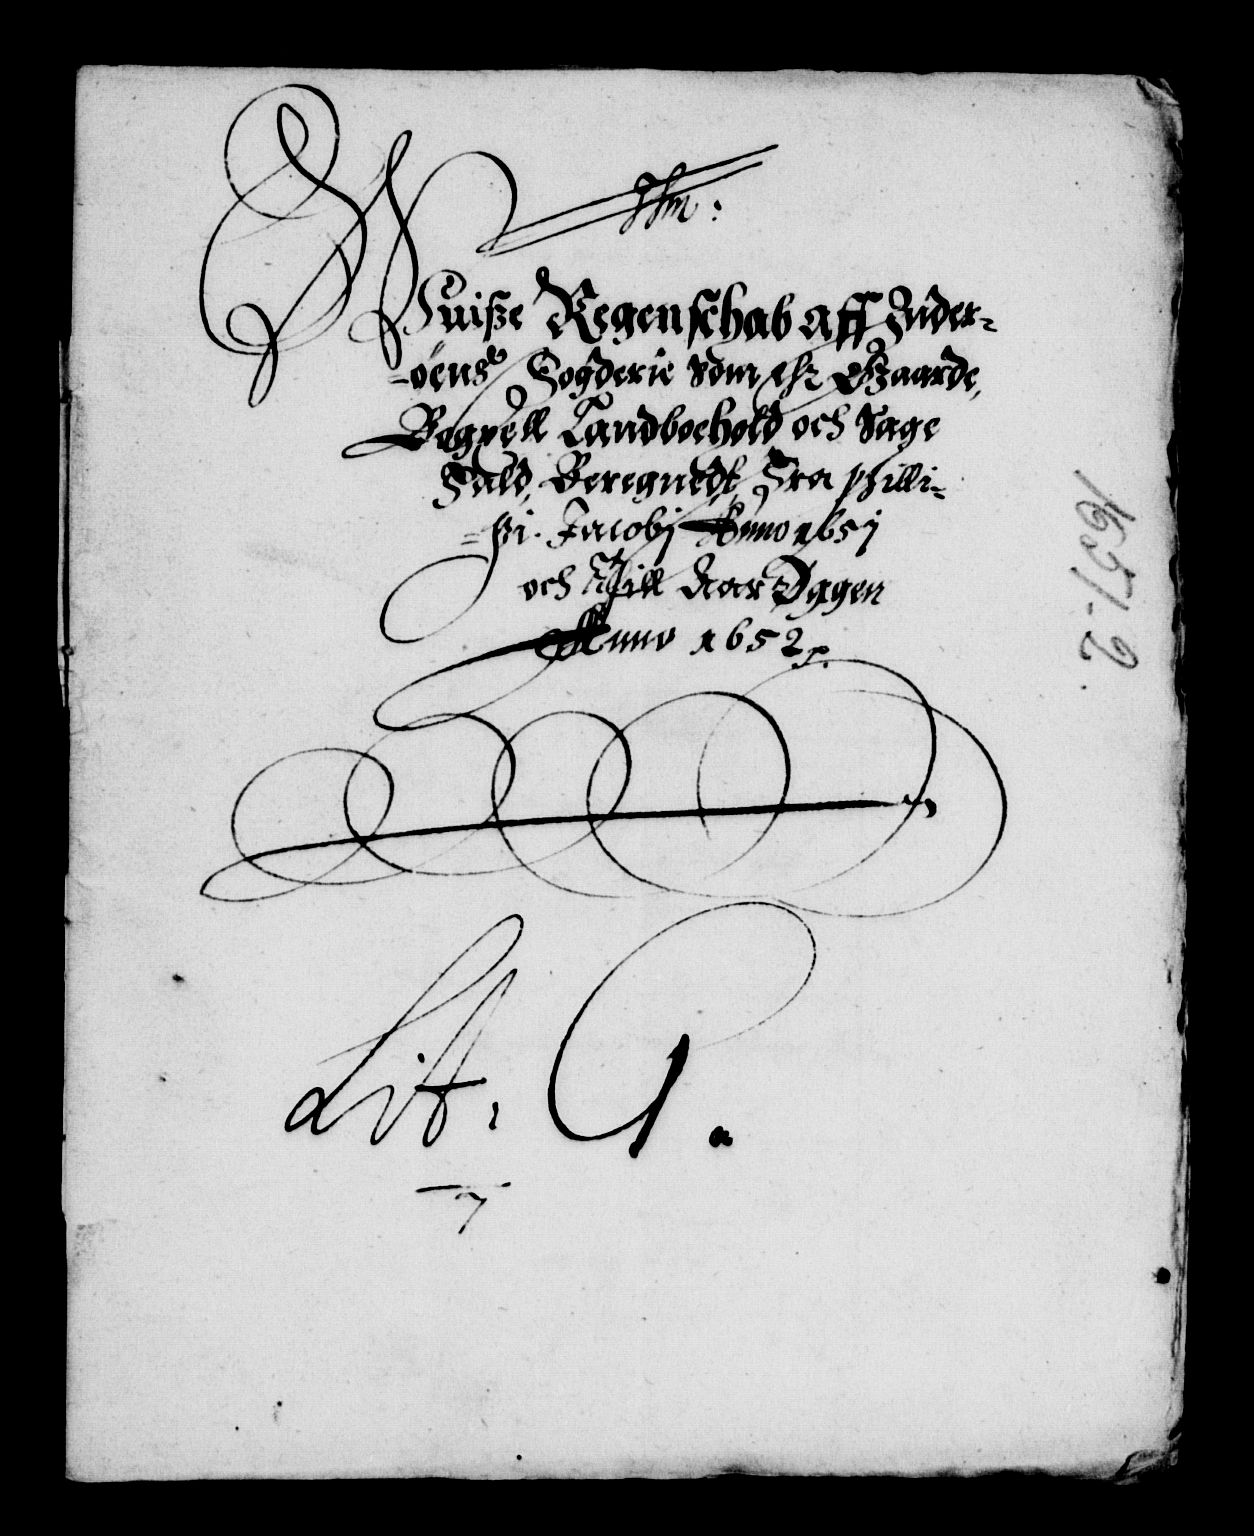 Wuiße Regenschab aff Inder-
-öens Fogderie som ehr Gaarde,
Bögxell Landboehold och Sage
Fald, Beregnedt, Fra philli-
=pi. Jacobj Anno 1651
och Till Aar Dagen
Anno 1652
Lit. G.
7
1651-2.